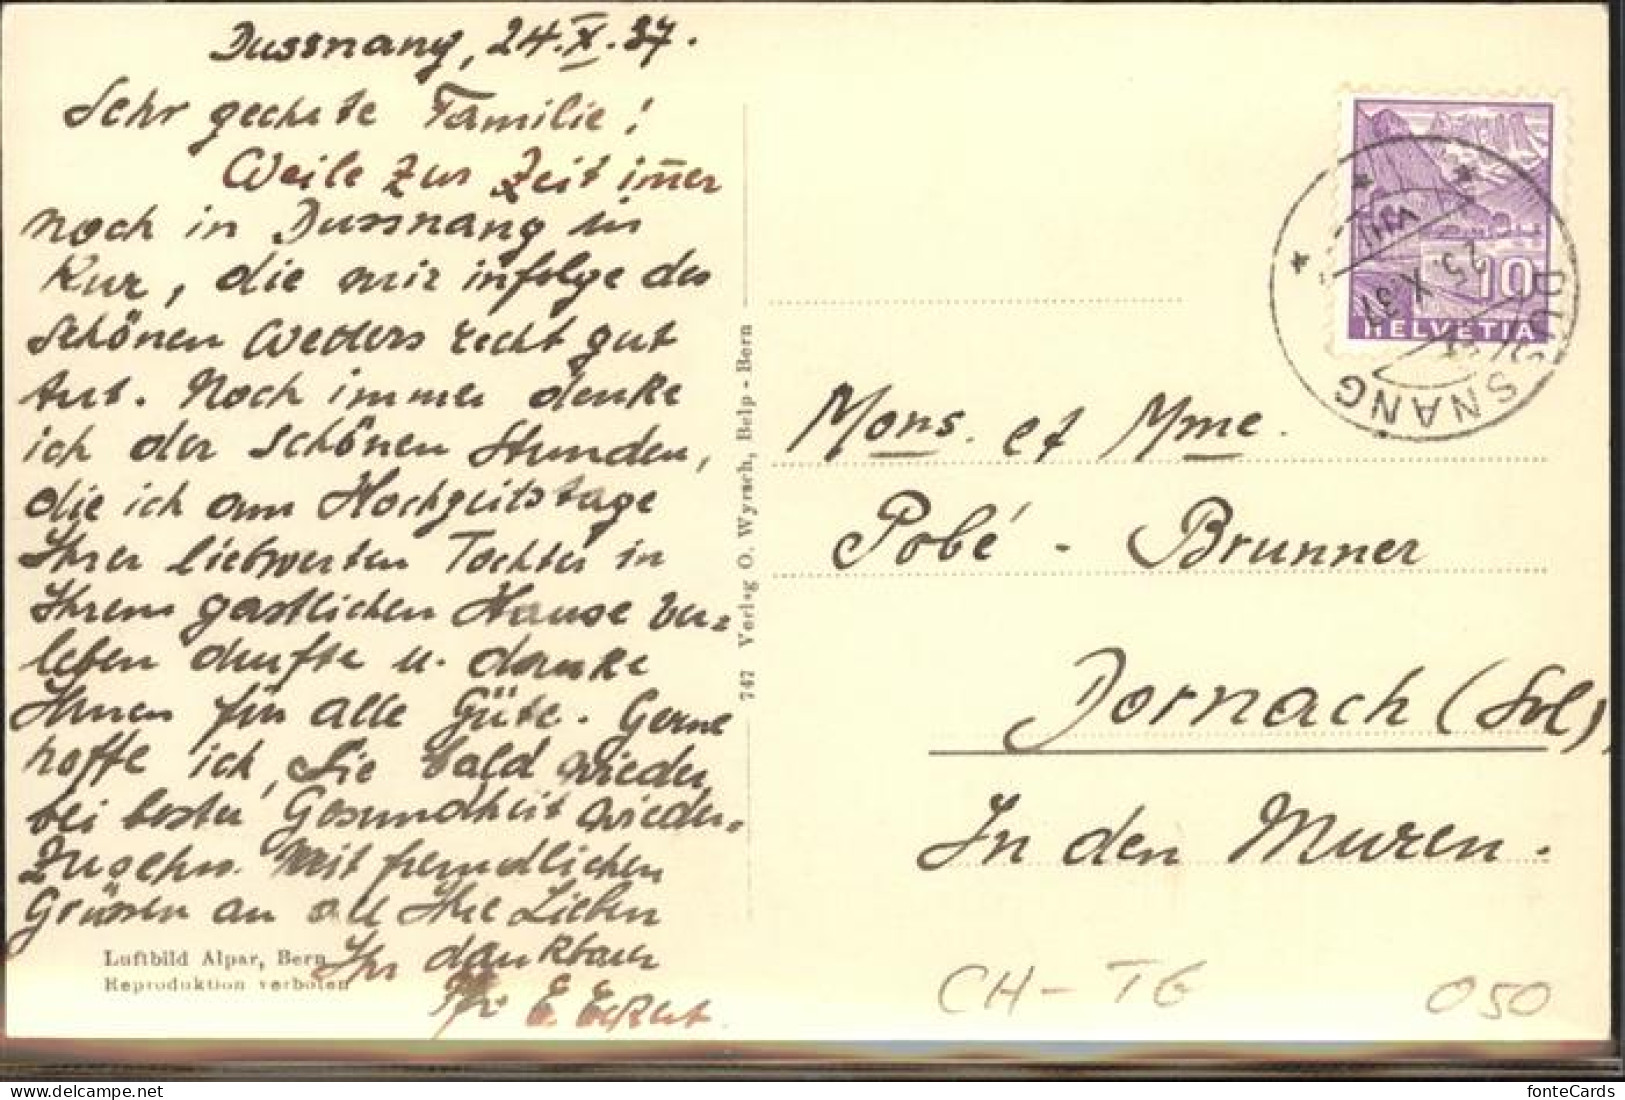 Dussnang, 24.X.37.
Sehr geehrte Familie!
Weile zur Zeit im̅er
noch in Dussnang in
Kur, die mir infolge des
schönen Wetters recht gut
tut. Noch immer denke
ich der schönen Stunden,
die ich am Hochzeitstage
Ihrer liebwerten Tochter in
Ihrem gastlichen Hause ver=
leben durfte u. danke
Ihnen für alle Güte. Gerne
hoffe ich, Sie bald wieder
bei bester Gesundheit wieder=
zusehn. Mit freundlichen
Grüssen an all Ihre Lieben
Ihr dankbarer
E. Eckert.
Luftbild Alpar, Bern
Reproduktion verboten
747 Verlag O. Wyrsch, Belp - Bern
10
HELVETIA
DUSSNANG
25. X. 37
VIII
Mons. et Mme.
Pobé - Brunner
Dornach (Sol),
In den Muren.
CH - TG
050
fonteCards